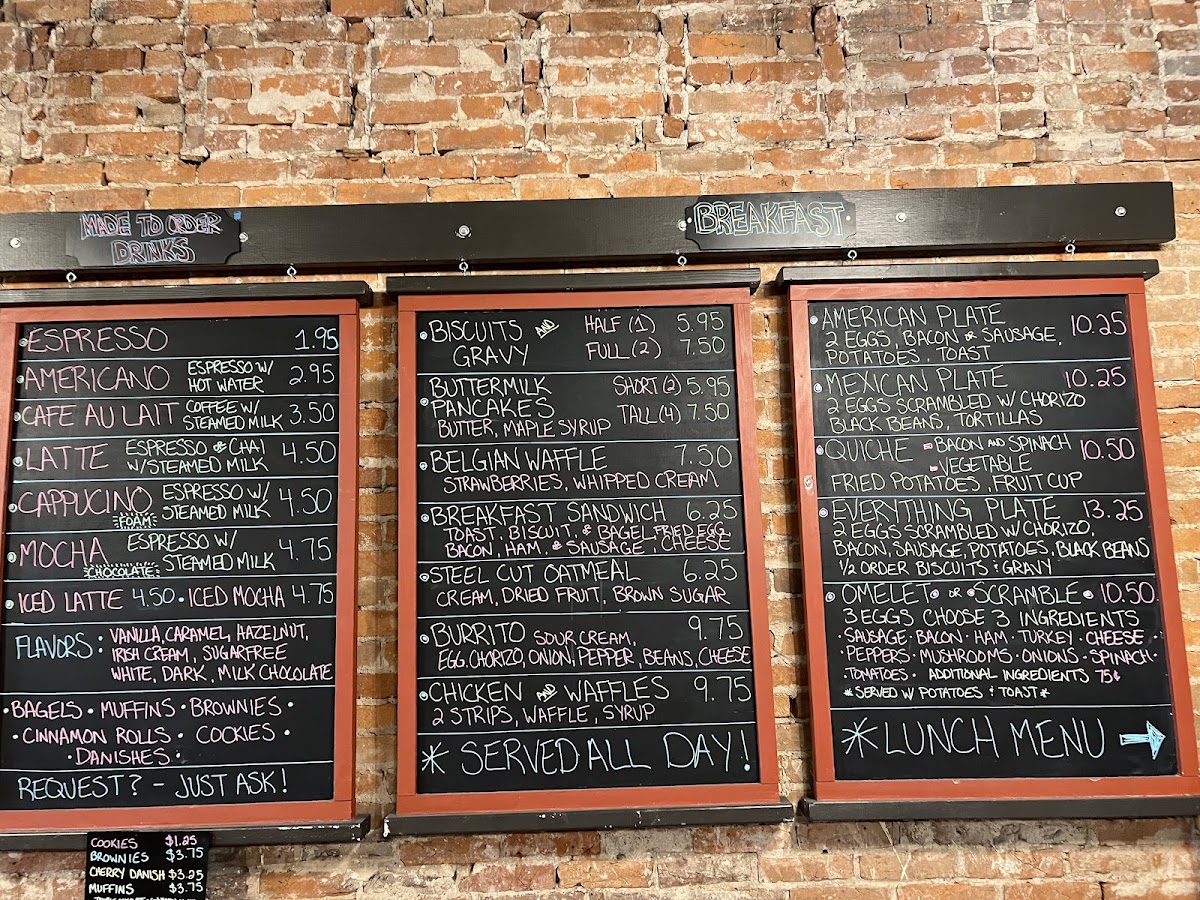 MADE TO ORDER
DRINKS
BREAKFAST
ESPRESSO 1.95
AMERICANO ESPRESSO W/ HOT WATER 2.95
CAFE AU LAIT COFFEE W/ STEAMED MILK 3.50
LATTE ESPRESSO OR CHAI W/STEAMED MILK 4.50
CAPPUCINO ESPRESSO W/ STEAMED MILK 4.50
FOAM
MOCHA ESPRESSO W/ STEAMED MILK 4.75
CHOCOLATE
ICED LATTE 4.50 • ICED MOCHA 4.75
FLAVORS: VANILLA, CARAMEL, HAZELNUT,
IRISH CREAM, SUGARFREE
WHITE, DARK, MILK CHOCOLATE
• BAGELS • MUFFINS • BROWNIES •
• CINNAMON ROLLS • COOKIES •
• DANISHES •
REQUEST? - JUST ASK!
COOKIES $1.25
BROWNIES $3.75
CHERRY DANISH $3.25
MUFFINS $3.75
BISCUITS AND HALF (1) 5.95
GRAVY FULL (2) 7.50
BUTTERMILK SHORT (2) 5.95
PANCAKES TALL (4) 7.50
BUTTER, MAPLE SYRUP
BELGIAN WAFFLE 7.50
STRAWBERRIES, WHIPPED CREAM
BREAKFAST SANDWICH 6.25
TOAST, BISCUIT, & BAGEL, FRIED EGG
BACON, HAM, OR SAUSAGE, CHEESE
STEEL CUT OATMEAL 6.25
CREAM, DRIED FRUIT, BROWN SUGAR
BURRITO SOUR CREAM, 9.75
EGG, CHORIZO, ONION, PEPPER, BEANS, CHEESE
CHICKEN AND WAFFLES 9.75
2 STRIPS, WAFFLE, SYRUP
* SERVED ALL DAY!
AMERICAN PLATE 10.25
2 EGGS, BACON OR SAUSAGE,
POTATOES, TOAST
MEXICAN PLATE 10.25
2 EGGS SCRAMBLED W/ CHORIZO
BLACK BEANS, TORTILLAS
QUICHE - BACON AND SPINACH 10.50
- VEGETABLE
FRIED POTATOES, FRUIT CUP
EVERYTHING PLATE 13.25
2 EGGS SCRAMBLED W/ CHORIZO,
BACON, SAUSAGE, POTATOES, BLACK BEANS
1/2 ORDER BISCUITS & GRAVY
OMELET OR SCRAMBLE 10.50
3 EGGS CHOOSE 3 INGREDIENTS
• SAUSAGE • BACON • HAM • TURKEY • CHEESE •
• PEPPERS • MUSHROOMS • ONIONS • SPINACH •
• TOMATOES • ADDITIONAL INGREDIENTS 75¢
* SERVED W/ POTATOES & TOAST *
* LUNCH MENU →